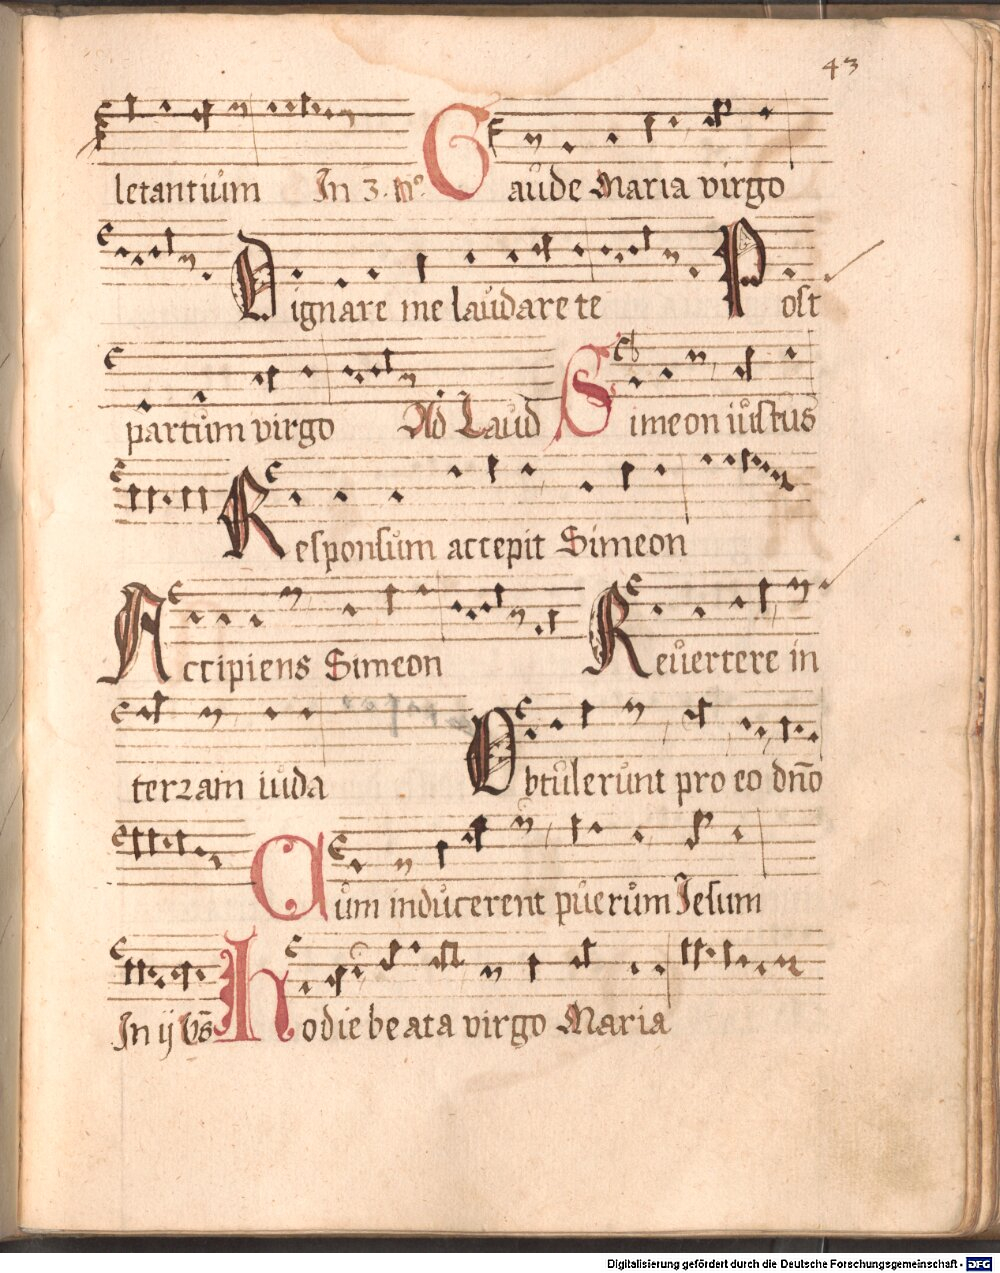 43
letantium In 3. No. Gaude Maria virgo
Dignare me laudare te Post
partum virgo Ad Laud Simeon iustus
Responsum accepit Simeon
Accipiens Simeon Revertere in
terram iuda Obtulerunt pro eo dño
Cum inducerent puerum Jesum
In ij Vs Hodie beata virgo Maria
Digitalisierung gefördert durch die Deutsche Forschungsgemeinschaft - DFG